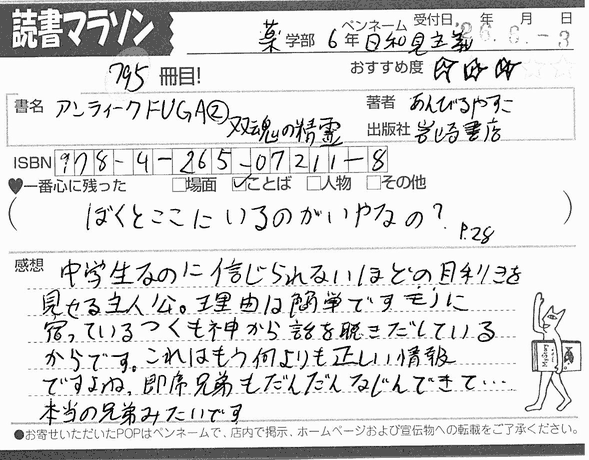 読書マラソン
薬学部 6年 ペンネーム 日和見主義 受付日 年 月 日
795冊目! おすすめ度 ☆☆☆
書名 アンティークFUGA② 双魂の精霊
著者 あんびるやすこ
出版社 岩崎書店
ISBN 978-4-265-07211-8
♥一番心に残った □場面 ☑ことば □人物 □その他
(ぼくとここにいるのがいやなの? P.28)
感想 中学生なのに信じられないほどの目利きを
見せる主人公。理由は簡単ですモノに
宿っているつくも神から話を聴きだしている
からです。これはもう何よりも正しい情報
ですよね。即席兄弟もだんだんなじんできて…
本当の兄弟みたいです
●お寄せいただいたPOPはペンネームで、店内で掲示、ホームページおよび宣伝物への転載をご了承ください。